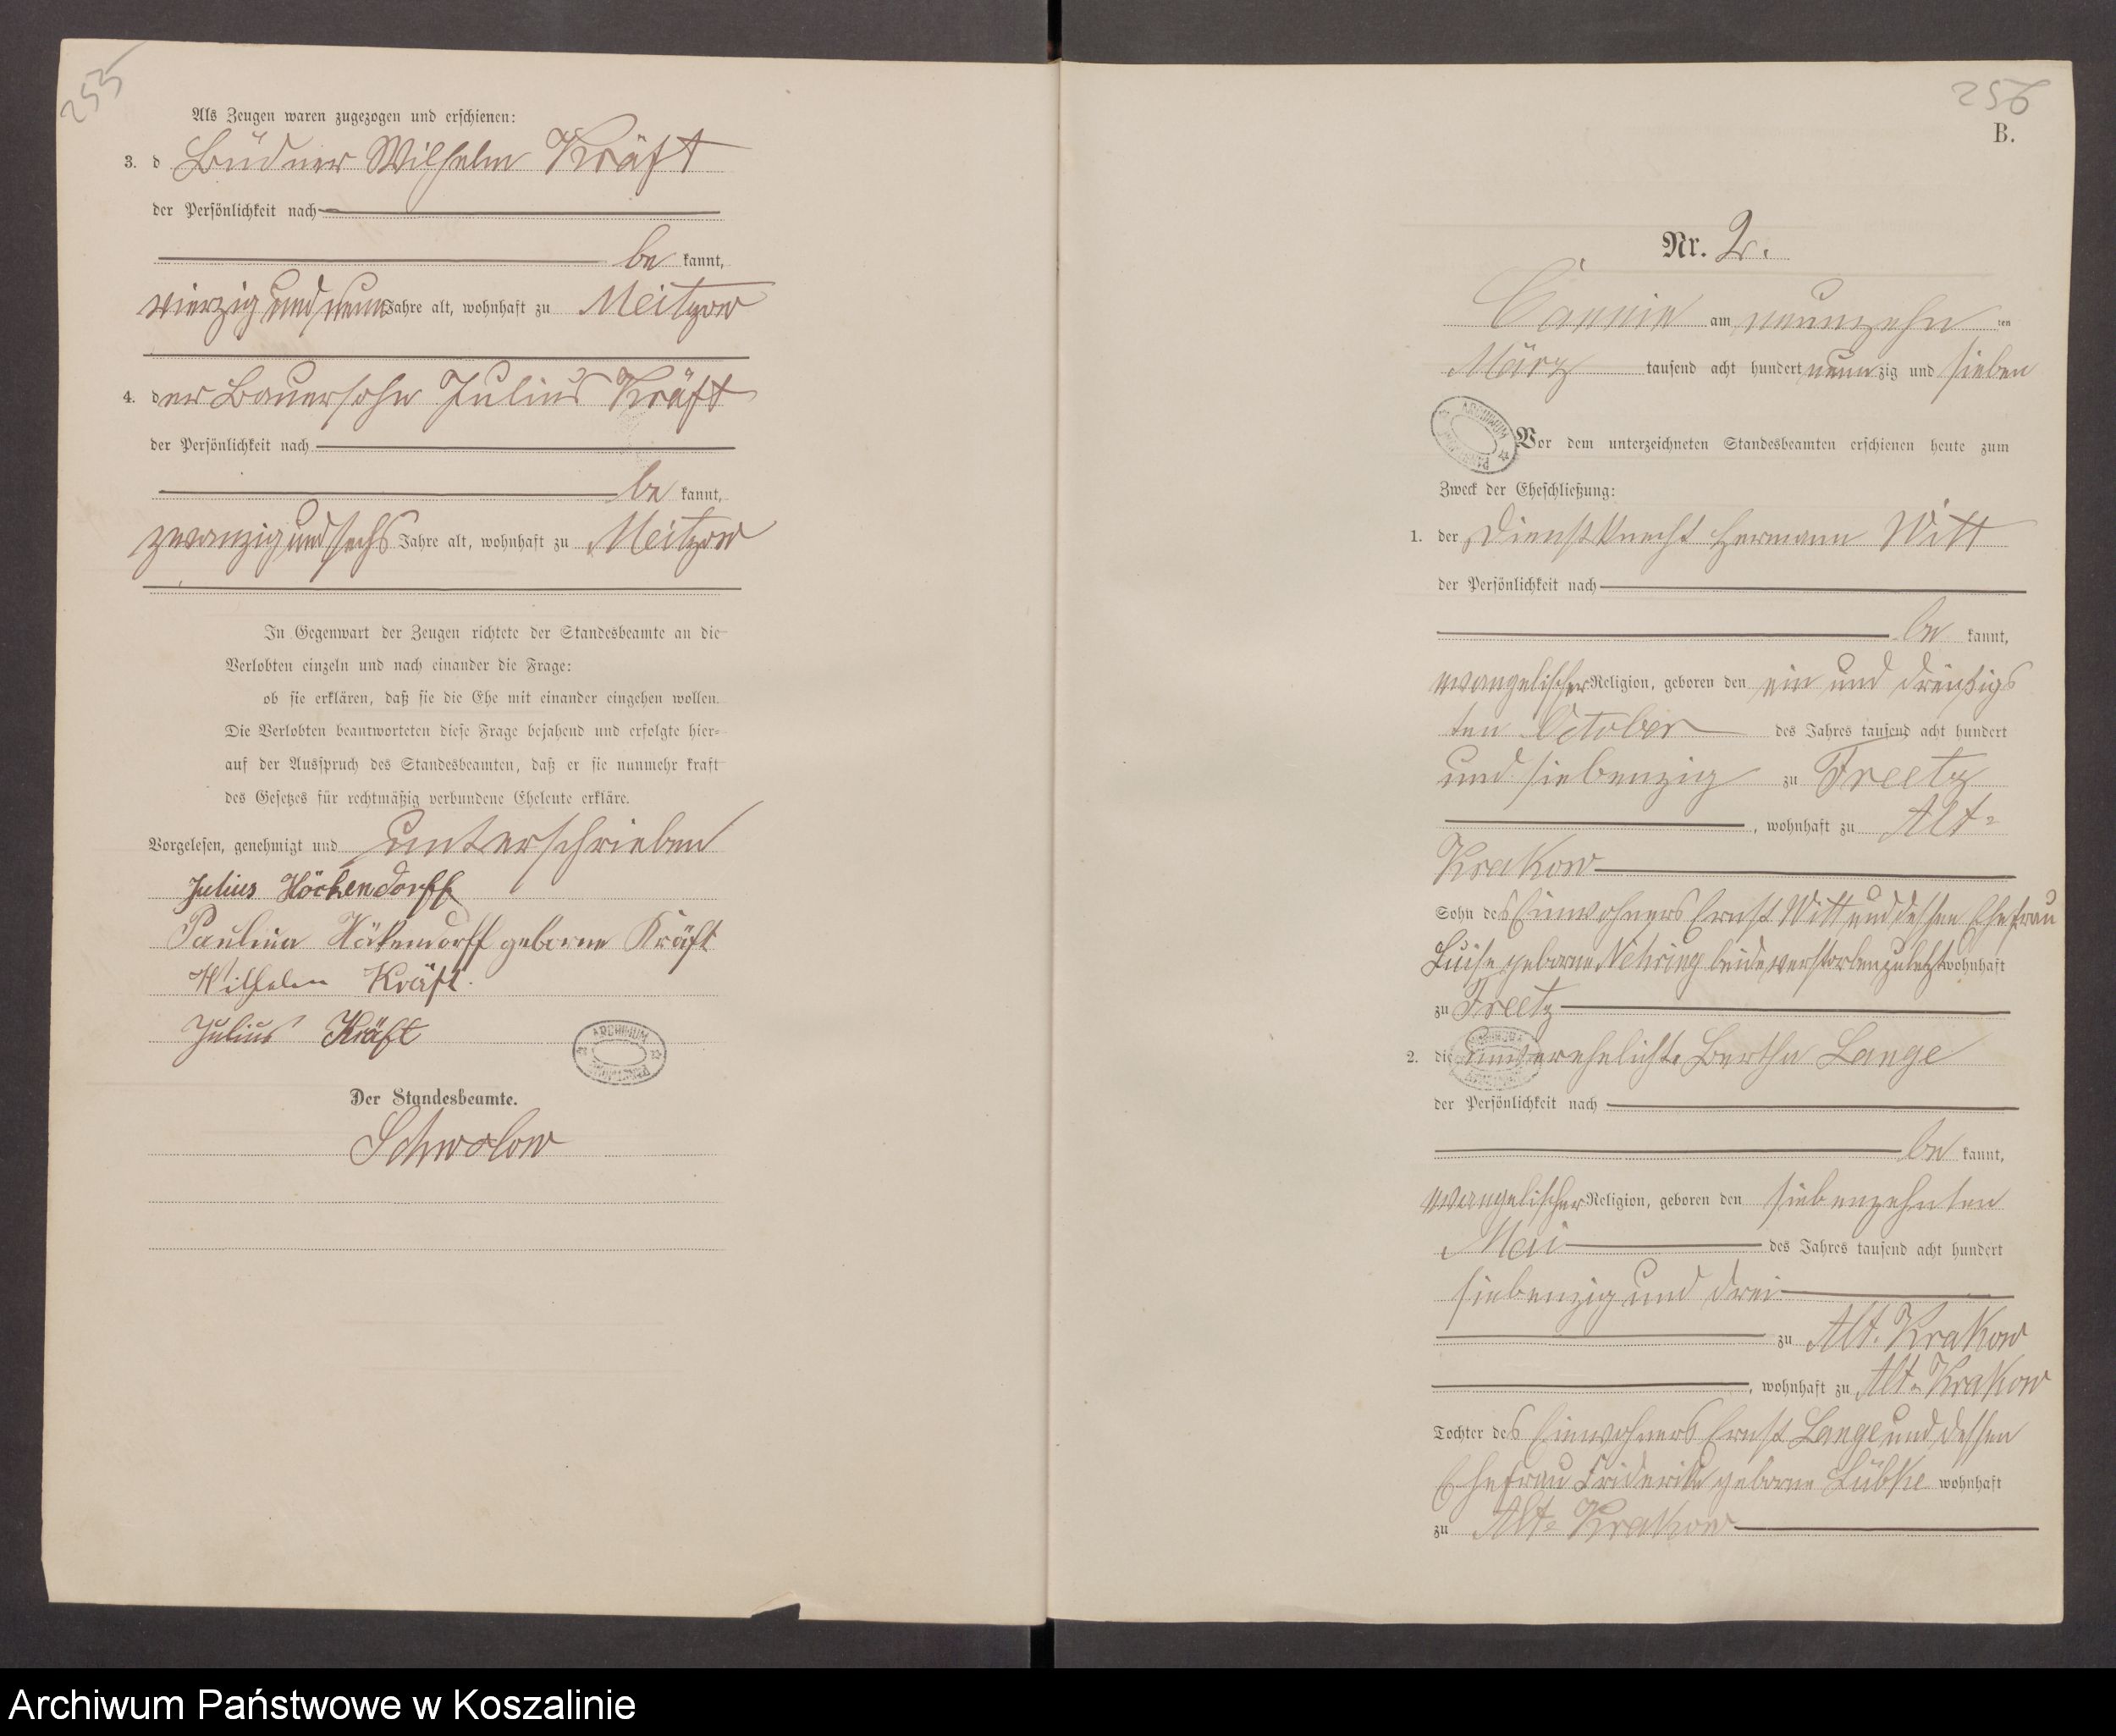 255
Als Zeugen waren zugezogen und erschienen:
3. d Büdner Wilhelm Kräft
der Persönlichkeit nach
be kannt,
vierzig und neun Jahre alt, wohnhaft zu Meitzow
4. der Bauersohn Julius Kräft
der Persönlichkeit nach
be kannt,
zwanzig und sechs Jahre alt, wohnhaft zu Meitzow
In Gegenwart der Zeugen richtete der Standesbeamte an die
Verlobten einzeln und nach einander die Frage:
ob sie erklären, daß sie die Ehe mit einander eingehen wollen.
Die Verlobten beantworteten diese Frage bejahend und erfolgte hier-
auf der Ausspruch des Standesbeamten, daß er sie nunmehr kraft
des Gesetzes für rechtmäßig verbundene Eheleute erkläre.
Vorgelesen, genehmigt und unterschrieben
Julius Höckendorff
Paulina Häkendorff geborne Kräft
Wilhelm Kräft.
Julius Kräft
ARCHIWUM
Der Standesbeamte.
Schwolow
256
B.
Nr. 2.
Cannin am neunzehn ten
März tausend acht hundert neun zig und sieben
ARCHIWUM
Vor dem unterzeichneten Standesbeamten erschienen heute zum
Zweck der Eheschließung:
1. der Dienstknecht Hermann Witt
der Persönlichkeit nach
be kannt,
evangelischer Religion, geboren den ein und dreißigs
ten October des Jahres tausend acht hundert
und siebenzig zu Freetz
, wohnhaft zu Alt-
Krakow
Sohn des Einwohners Ernst Witt und dessen Ehefrau
Luise geborne Nehring beide verstorben zuletzt wohnhaft
zu Freetz
2. die unverehelichte Bertha Lange
der Persönlichkeit nach
be kannt,
evangelischer Religion, geboren den siebenzehnten
Mai des Jahres tausend acht hundert
siebenzig und drei
zu Alt-Krakow
, wohnhaft zu Alt-Krakow
Tochter des Einwohners Ernst Lange und dessen
Ehefrau Friderike geborne Lübke wohnhaft
zu Alt-Krakow
Archiwum Państwowe w Koszalinie